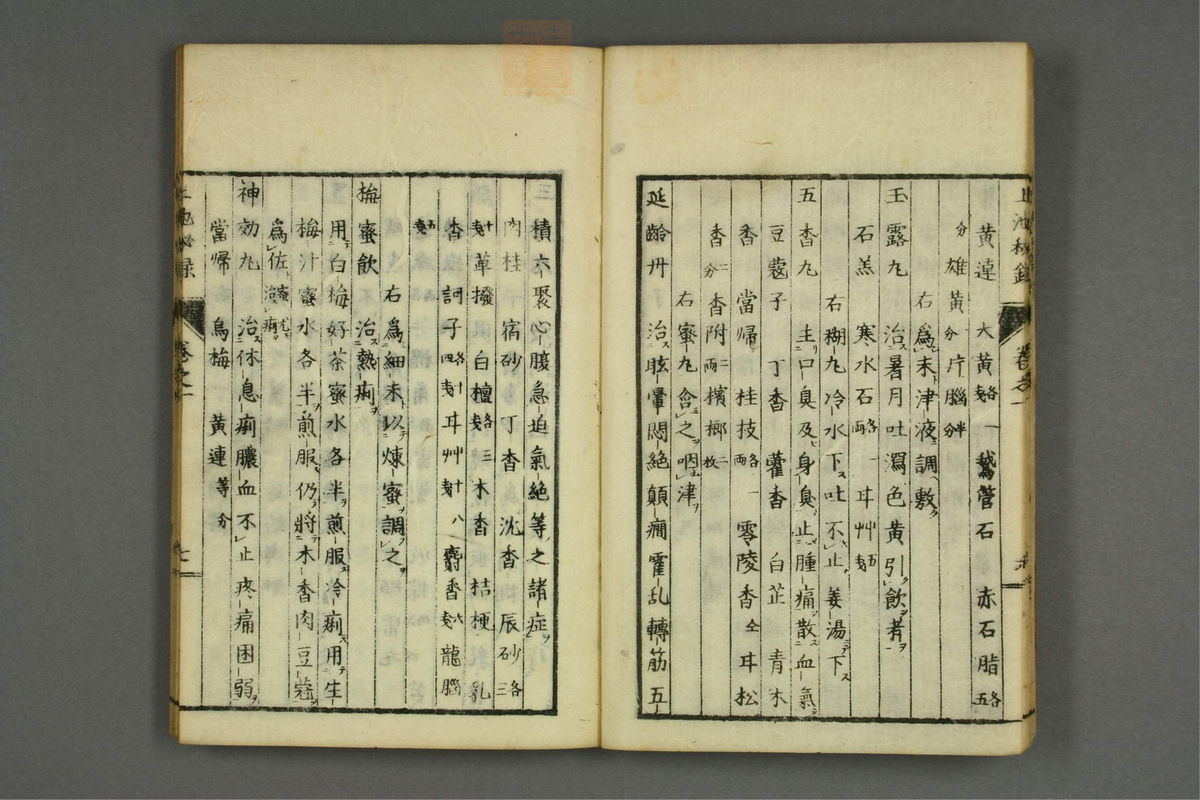 黄連　大黄各一戔　鵞管石　赤石脂各五
分　雄黄一分　片腦半分
右爲末津液調敷
玉露丸　治暑月吐瀉色黄引飲者
石羔　寒水石各一兩　甘艸五戔
右糊丸冷水下吐不止姜湯下
五香丸　主口臭及身臭止腫痛散血氣
豆蔻子　丁香　藿香　白芷　青木
香　當帰　桂技各一兩　零陵香　甘松
香二分　香附二兩　檳榔二枚
右蜜丸含之咽津
延齡丹　治眩暈悶絶顛癇霍乱轉筋五
三積六聚心腹急迫氣絶等之諸症
肉桂　宿砂　丁香　沈香　辰砂各三
十戔　蓽撥　白檀各三戔　木香　桔梗　乳
香　訶子各四戔　甘艸十八戔　麝香六戔　龍腦
五戔
右爲細末以煉蜜調之
梅蜜飲　治熱痢
用白梅好茶蜜水各半煎服冷痢用生
梅汁蜜水各半煎服仍將木香肉豆蔻
爲佐蜜尤治痢
神効丸　治休息痢膿血不止疼痛困弱
當帰　烏梅　黄連等分
上池秘録
卷之一
七